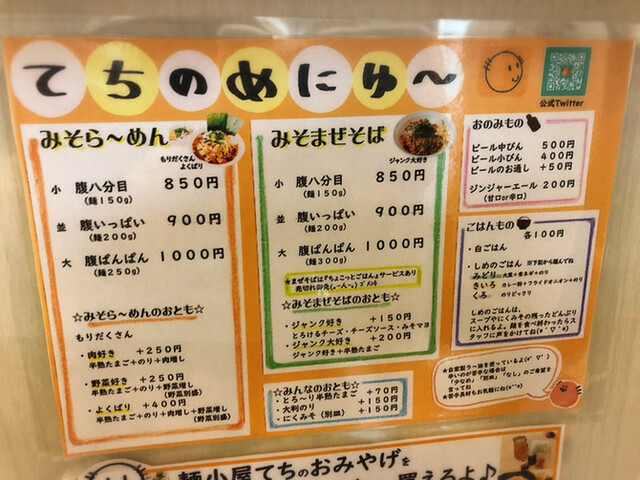 てちのめにゅ〜
公式Twitter
みそら〜めん
もりだくさん
よくばり
小 腹八分目 850円
(麺150g)
並 腹いっぱい 900円
(麺200g)
大 腹ぱんぱん 1000円
(麺250g)
☆みそら〜めんのおとも☆
もりだくさん
・肉好き +250円
半熟たまご+のり+肉増し
・野菜好き +250円
半熟たまご+のり+野菜増し
(野菜別盛)
・よくばり +400円
半熟たまご+のり+肉増し+野菜増し
(野菜別盛)
みそまぜそば
ジャンク大好き
小 腹八分目 850円
(麺150g)
並 腹いっぱい 900円
(麺200g)
大 腹ぱんぱん 1000円
(麺300g)
★まぜそばは『ちょこっとごはん』サービスあり
売切れ御免
☆みそまぜそばのおとも☆
・ジャンク好き +150円
とろけるチーズ・チーズソース・みそマヨ
・ジャンク大好き +200円
ジャンク好き+半熟たまご
☆みんなのおとも☆
・とろ〜り半熟たまご +70円
・大判のり +150円
・にくみそ(別皿) +150円
おのみもの
ビール中びん 500円
ビール小びん 400円
ビールのお通し +50円
ジンジャーエール 200円
(甘口or辛口)
ごはんもの
各100円
・白ごはん
・しめのごはん ※下記から選んでね
みどり
きいろ カレー粉+フライドオニオン+のり
くろ のりどっさり
しめのごはんは、
スープやにくみその残ったどんぶり
に入れるよ。麺を食べ終わったらス
タッフに声をかけてね(*'▽')
★自家製ラー油を使っているよ(*'▽')
辛いのが苦手な場合は
「少なめ」「別皿」「なし」のご希望を
言ってね
★苦手具材もお気軽にね(*^^*)
麺小屋てちのおみやげを
買えるよ♪